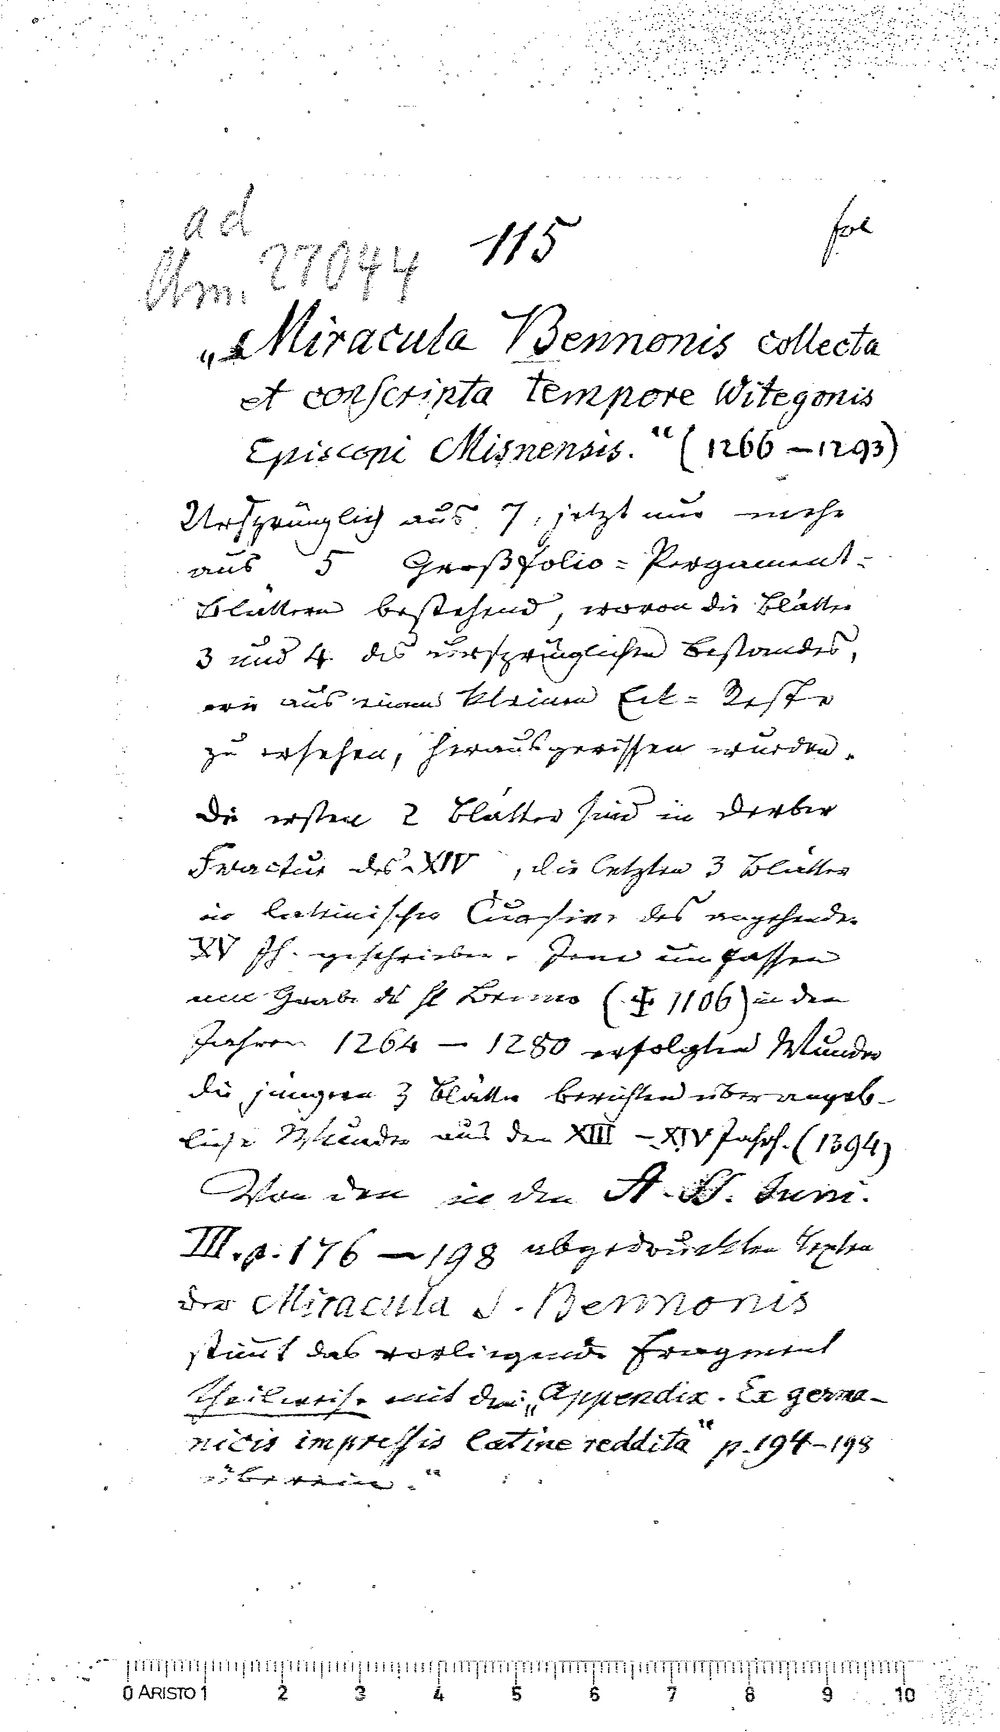 ad
Clm. 27044
115
fol
„Miracula Bennonis collecta
et conscripta tempore Witegonis
Episcopi Misnensis.“ (1266 – 1293)
Ursprünglich aus 7, jetzt nur mehr
aus 5 Großfolio = Pergament-
Blättern bestehend, wovon die Blätter
3 und 4 des ursprünglichen Bestandes,
wie aus einem kleinen Eck = Reste
zu ersehen, herausgerissen wurden.
Die ersten 2 Blätter sind in derber
Fractur des XIV, die letzten 3 Blätter
in lateinischer Cursive des angehenden
XV Jh. geschrieben. Jene umfassen
am Grabe des hl Benno (✠ 1106) in den
Jahren 1264 – 1280 erfolgten Wunder
die jüngern 3 Blätter berichten über angeb-
liche Wunder aus dem XIII – XIV Jahrh. (1394)
Von den in den A. SS. Juni.
III. p. 176 – 198 abgedruckten Texten
der Miracula S. Bennonis
stimmt das vorliegende Fragment
theilweise mit dem „Appendix. Ex germa-
nicis impressis latine reddita“ p. 194–198
überein.“
0 ARISTO 1 2 3 4 5 6 7 8 9 10